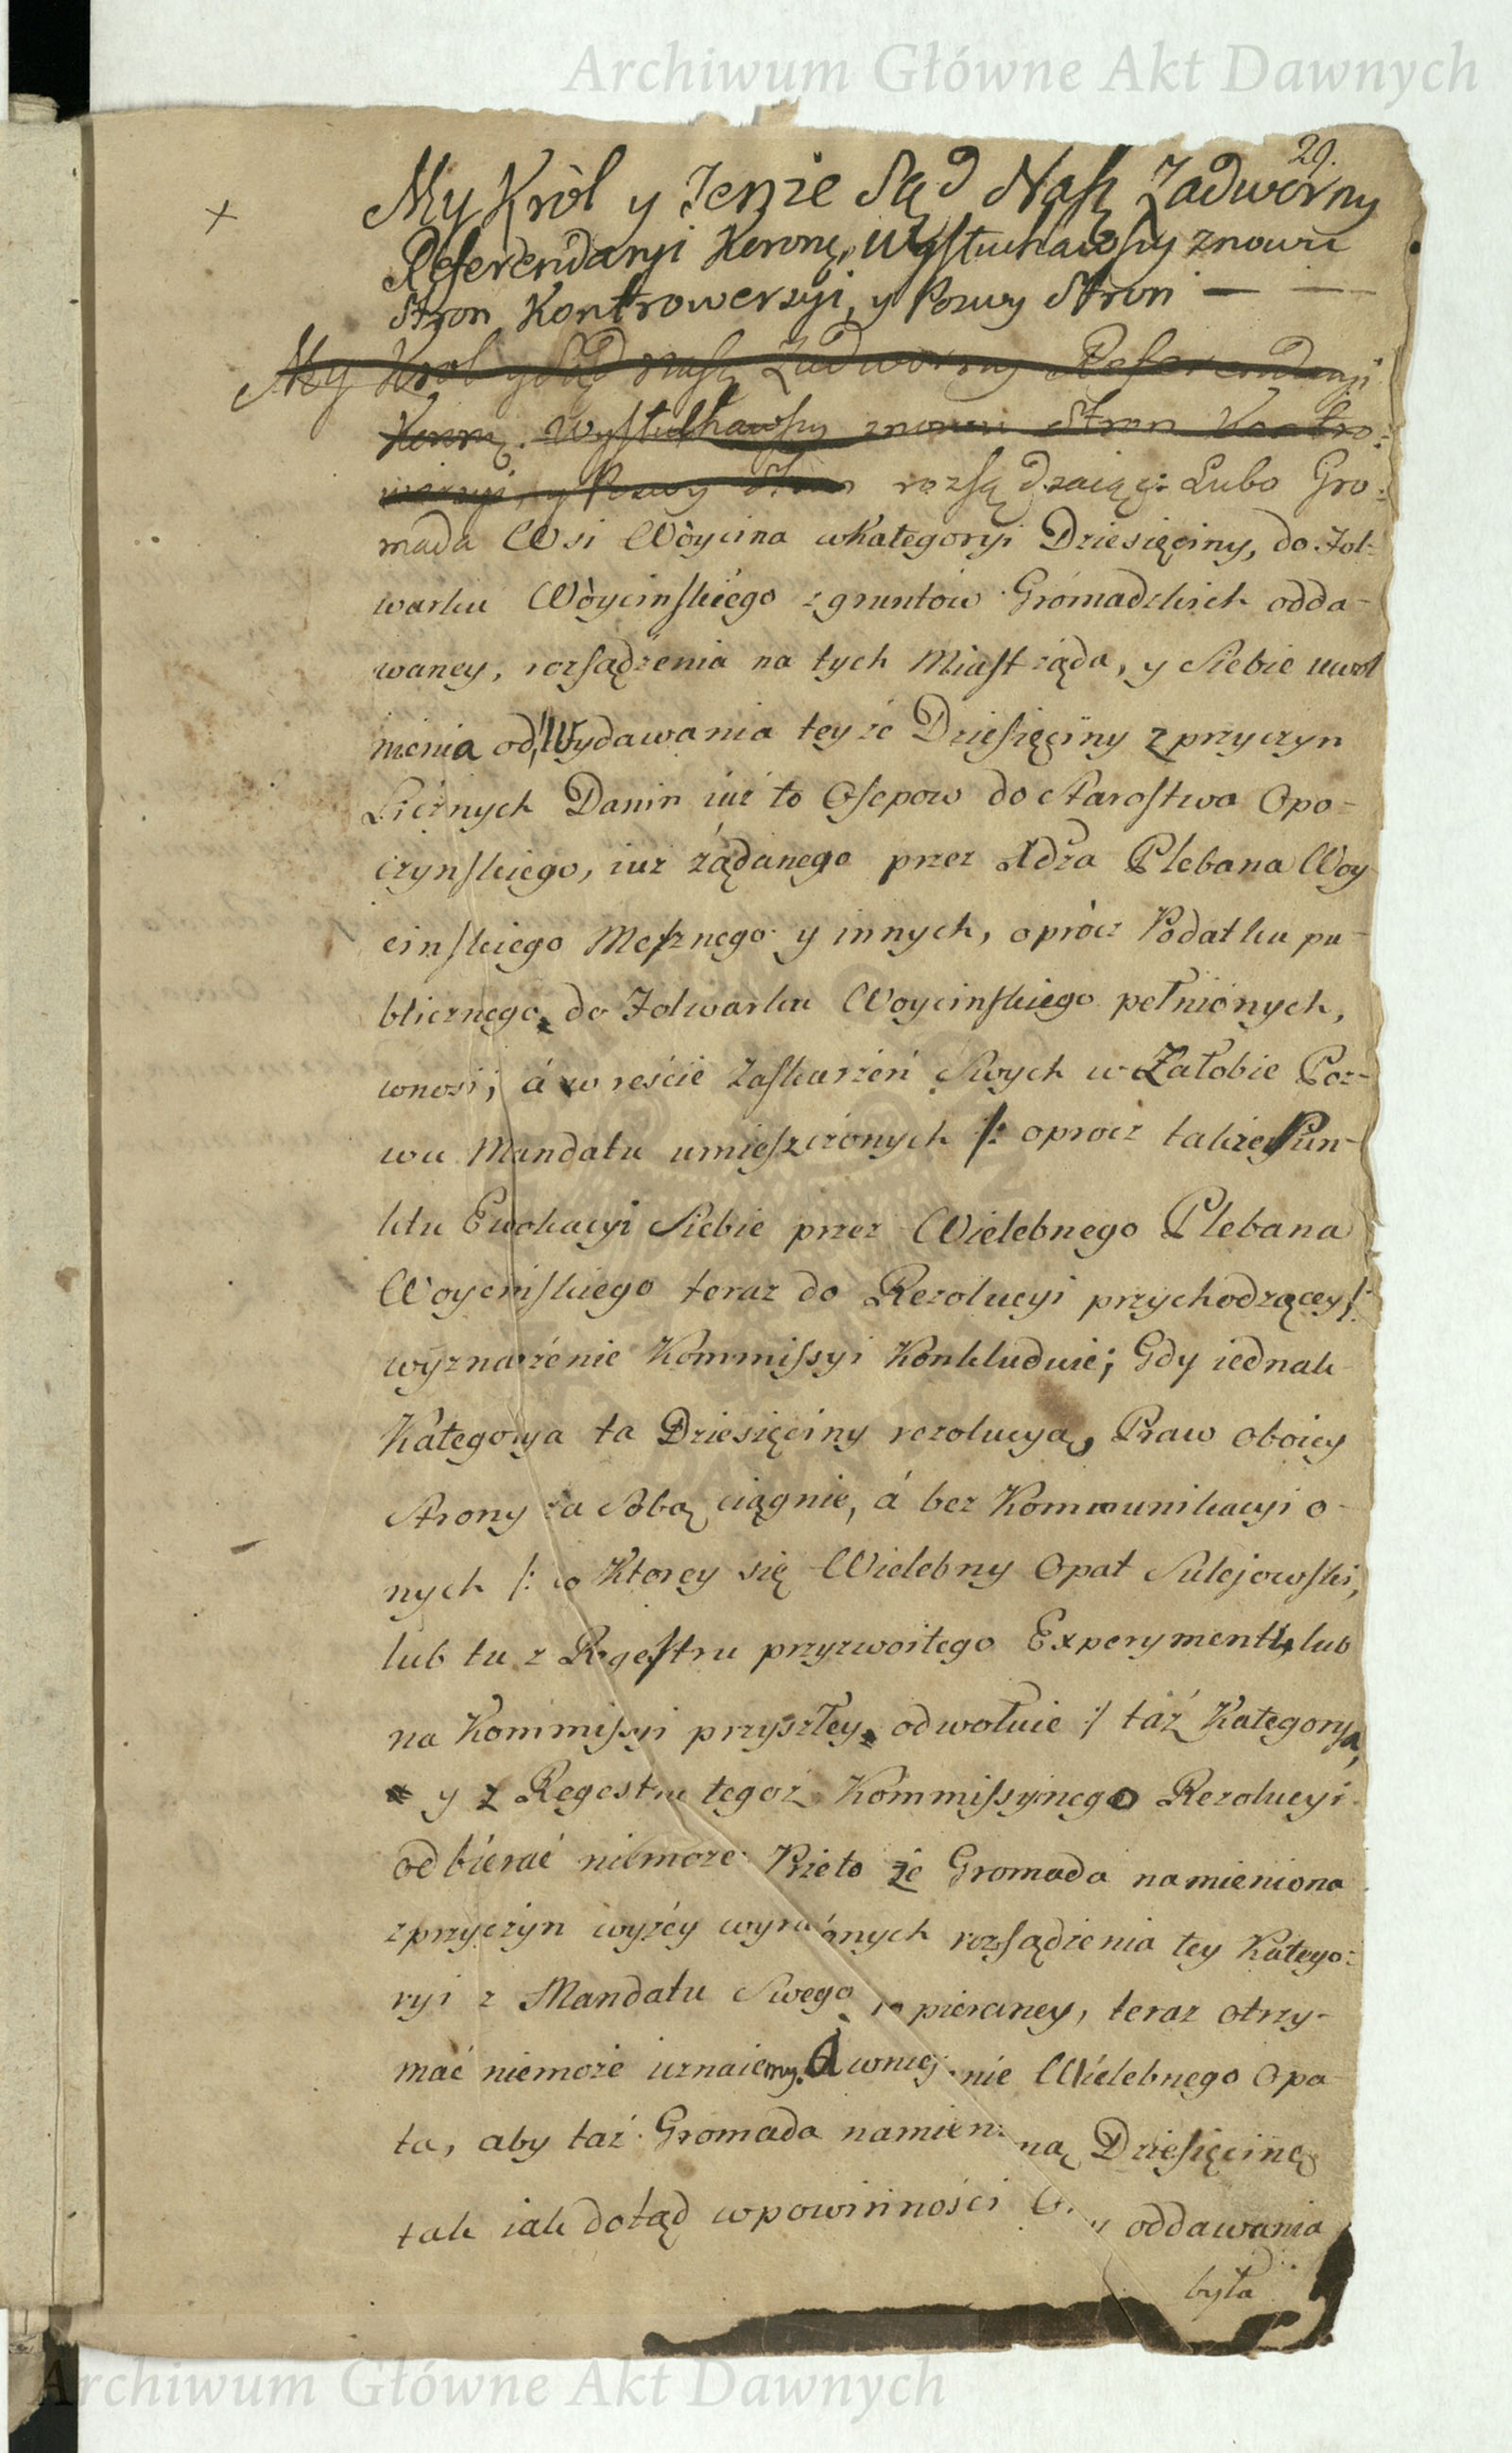 Archiwum Główne Akt Dawnych
29.
My Król y Tenże Sąd Nasz Zadworny
Referendaryi Koronę. Wysłuchawszy znowu
Stron Kontrowersyi, y Pozwy Stron —
My Krol y Sąd nasz Zadworny Referendaryi
Koronę. Wysłuchawszy znowu Stron Kontro:
wersyi, y Pozwy Stron rozsądzaiąc: Lubo Gro:
mada Wsi Wòycina wkategoryi Dziesięciny, do Fol:
warku Wòycinskiégo z gruntòw Gròmadzkich odda-
waney, rozsądzenia na tych Miast ząda, y Siebie uwol
nienia od Wydawania teyże Dziesięciny z przyczyn
Licznych Danin iuż to Osepow do Starostwa Opo-
czynskiego, iuż żądanego przez Xdza Plebana Woy
cinskiego Mesznego y innych, opròcz Podatku pu-
blicznego do Folwarku Woycinskiego pełniònych,
wnosi; á w reście Zaskarżeń Swych w Załobie Poz-
wu Mandatu umieszczònych /: oprocz także Pun-
ktu Ewokacyi Siebie przez Wielebnego Plebana
Woycinskiego teraz do Rezolucyi przychodzącey /:
wyznaczénie Kommissyi Konkluduie; Gdy iednak
Kategorya ta Dziesięciny rezolucyą, Praw oboiey
Strony za Sobą ciągnie, á bez Kommunikacyi o-
nych /: do Ktorey się Wielebny Opat Sulejowski,
lub tu z Regestru przyzwoitego Experyment, lub
na Kommissyi przyszłey odwołuie :/ táż Kategorya,
y z Regestru tegoż Kommissyinego Rezolucyi
odbiérać niemoże. Przeto że Gromada namieniona
z przyczyn wyżéy wyrażonych rozsądzenia tey Katego:
ryi z Mandatu Swego popieraney, teraz otrzy-
mać niemoże uznaiemy. A wnie nie Wielebnego Opa
ta, aby taż Gromada namien: ną Dziesięcinę
tak iak dotąd wpowinności oddawania
była
Archiwum Główne Akt Dawnych